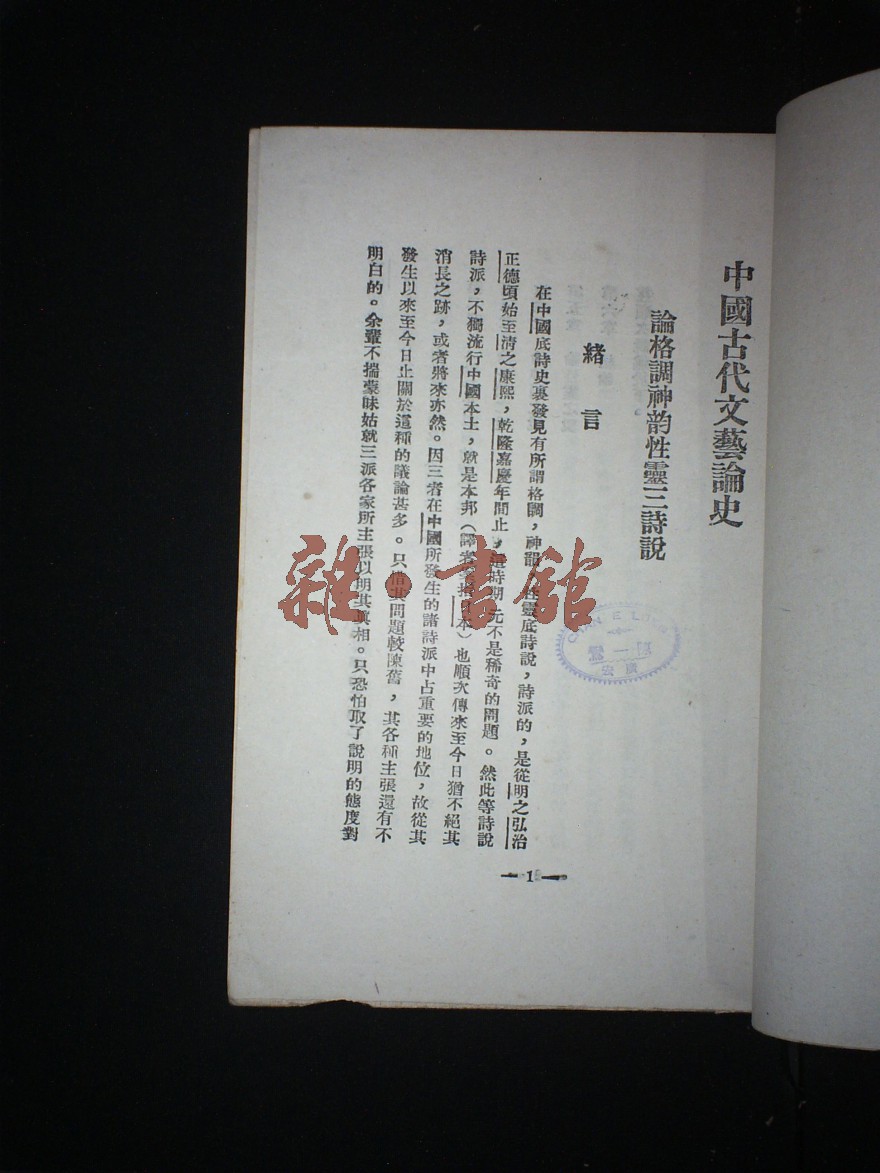 中國古代文藝論史
論格調神韵性靈三詩說
緒言
在中國底詩史裏發見有所謂格調，神韵，性靈底詩說，詩派的，是從明之弘治
正德頃始至清之康熙，乾隆嘉慶年間止，這時期元不是稀奇的問題。然此等詩說
詩派，不獨流行中國本土，就是本邦（譯者案指日本）也順次傳來至今日猶不絕其
消長之跡，或者將來亦然。因三者在中國所發生的諸詩派中占重要的地位，故從其
發生以來至今日止關於這種的議論甚多。只惜其問題較陳舊，其各種主張還有不
明白的。余輩不揣蒙昧姑就三派各家所主張以明其真相。只恐怕取了說明的態度對
1
雜·書館